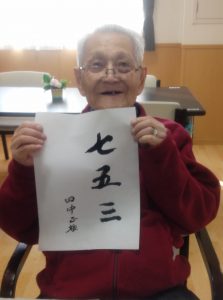 七五三
田中正雄